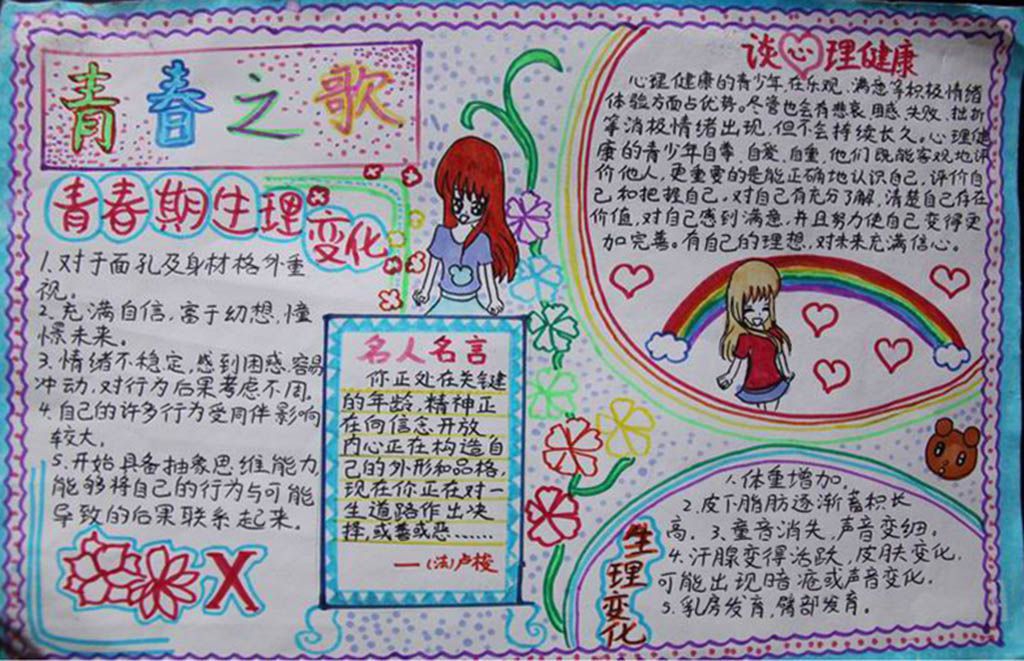 青春之歌
青春期生理
变化
1.对于面孔及身材格外重
视。
2.充满自信,富于幻想,憧
憬未来。
3.情绪不稳定,感到困惑.容易
冲动,对行为后果考虑不周。
4.自己的许多行为受同伴影响
较大。
5.开始具备抽象思维能力,
能够将自己的行为与可能
导致的后果联系起来。
X
名人名言
你正处在关键
的年龄,精神正
在向信念开放,
内心正在构造自
己的外形和品格,
现在你正在对一
生道路作出决
择,或善或恶……
—(法)卢梭
谈心理健康
心理健康的青少年在乐观、满意等积极情绪
体验方面占优势。尽管也会有悲哀、困惑、失败、挫折
等消极情绪出现,但不会持续长久。心理健
康的青少年自尊、自爱、自重,他们既能客观地评
价他人,更重要的是能正确地认识自己,评价自
己和把握自己。对自己有充分了解,清楚自己存在
价值,对自己感到满意,并且努力使自己变得更
加完善。有自己的理想,对未来充满信心。
生理变化
1.体重增加。
2.皮下脂肪逐渐蓄积长
高。3.童音消失,声音变细。
4.汗腺变得活跃,皮肤变化,
可能出现暗疮或声音变化。
5.乳房发育,臀部发育。